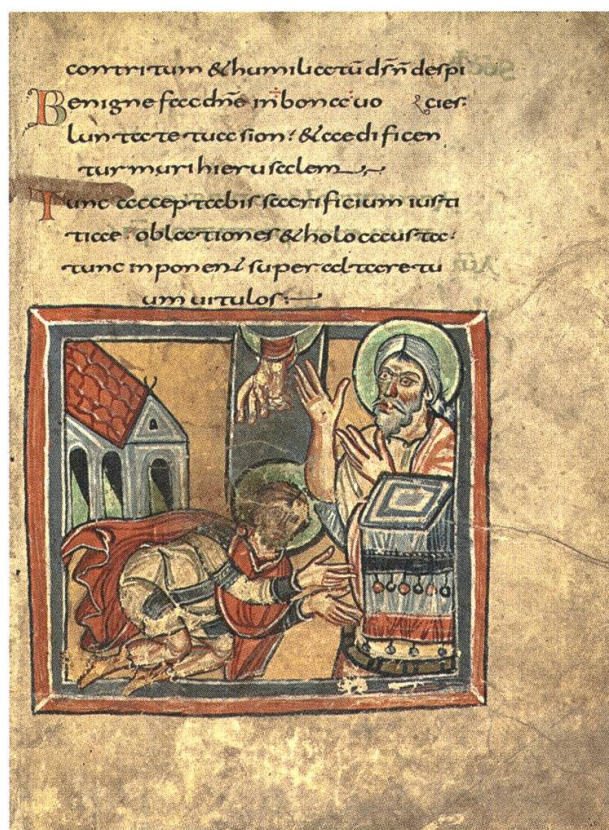 contritum & humiliatū ds̄ n̄ despi
Benigne fac dn̄e in bona uo cies
luntate tua sion: & aedificen
tur muri hierusalem
Tunc acceptabis sacrificium iusti
tiae oblationes & holocausta:
tunc inponent super altare tu
um uitulos: